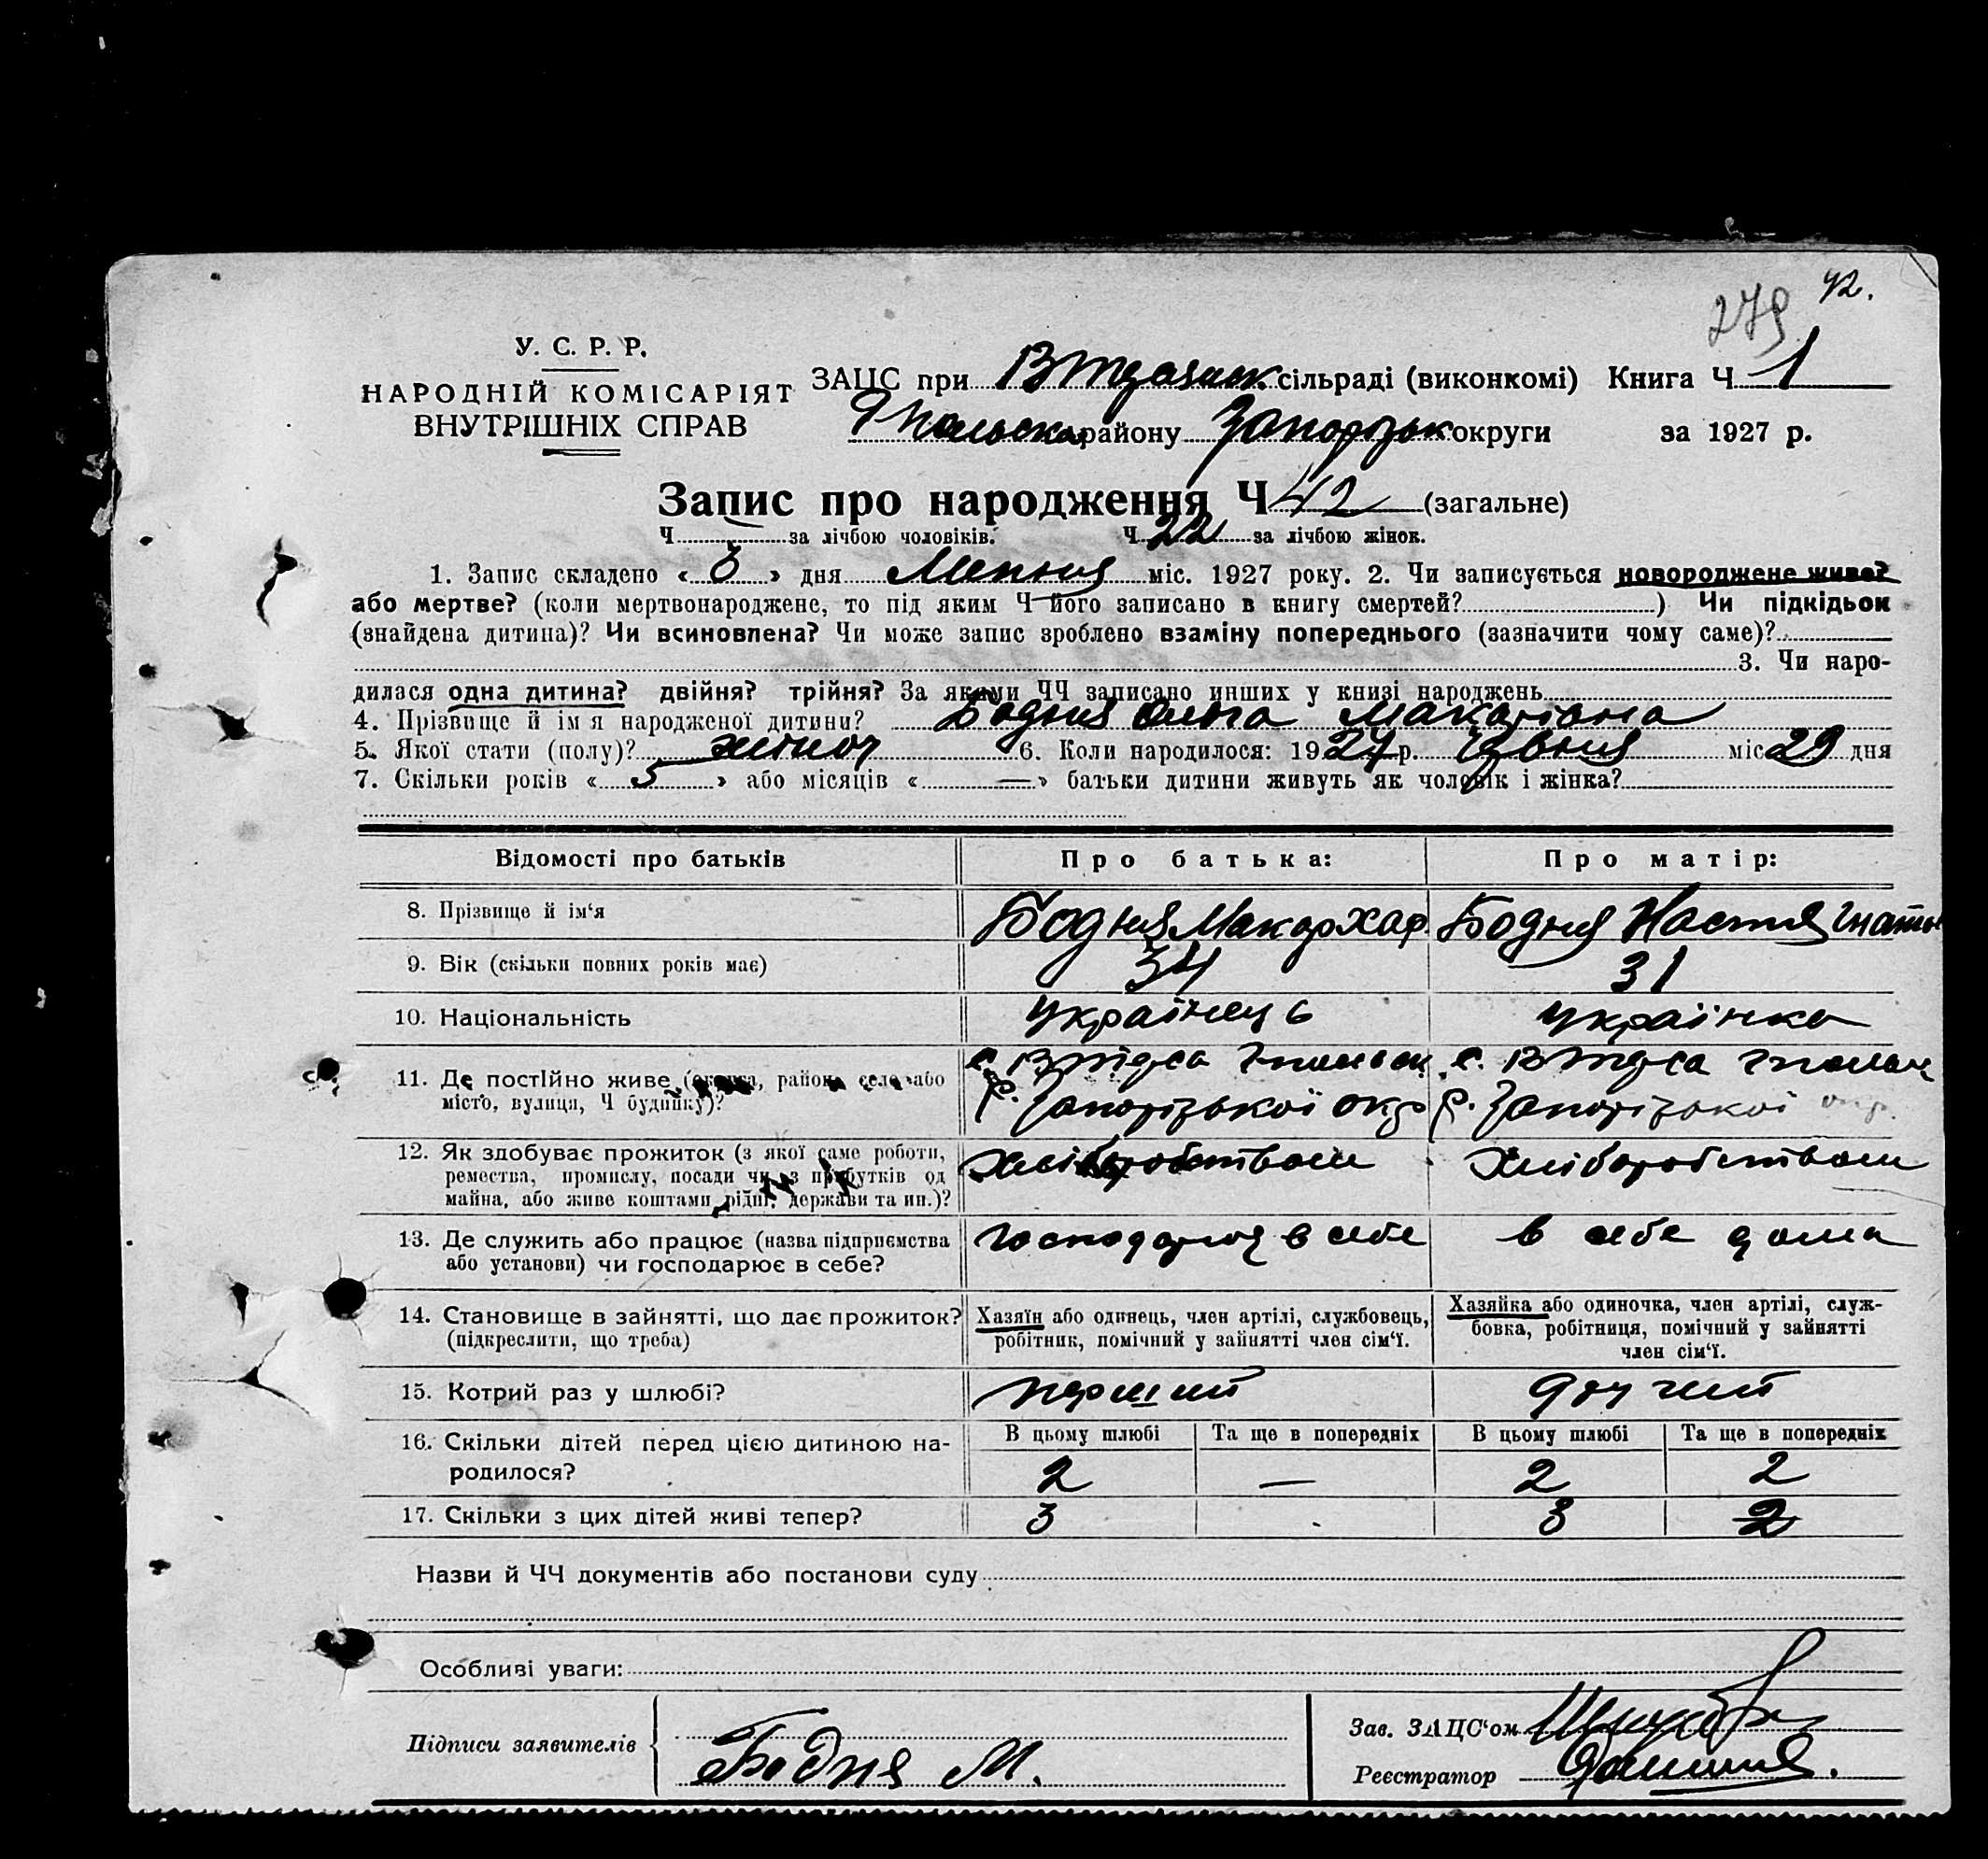 42.
279
У. С. Р. Р.
НАРОДНІЙ КОМІСАРІЯТ
ВНУТРІШНІХ СПРАВ
ЗАЦС при сільраді (виконкомі) Книга Ч 1
району Запорізьк округи за 1927 р.
Запис про народження Ч 42 (загальне)
Ч за лічбою чоловіків. Ч 22 за лічбою жінок.
1. Запис складено « » дня міс. 1927 року. 2. Чи записується новороджене живе?
або мертве? (коли мертвонароджене, то під яким Ч його записано в книгу смертей? ) Чи підкідьок
(знайдена дитина)? Чи всиновлена? Чи може запис зроблено взаміну попереднього (зазначити чому саме)?
3. Чи наро-
дилася одна дитина? двійня? трійня? За якими ЧЧ записано инших у книзі народжень
4. Прізвище й ім я народженої дитини? Бодня Ольга Макарівна
5. Якої стати (полу)? жіноч 6. Коли народилося: 1927 р. міс 29 дня
7. Скільки років « 5 » або місяців « — » батьки дитини живуть як чоловік і жінка?
Відомості про батьків Про батька: Про матір:
8. Прізвище й ім'я Бодня Макар Хар Бодня Настя Гнатів
9. Вік (скільки повних років має) 34 31
10. Національність українець українка
11. Де постійно живе (округа, район, село або
місто, вулиця, Ч будинку)?
с. с.
р. Запорізької окр р. Запорізької окр.
12. Як здобуває прожиток (з якої саме роботи,
ремества, промислу, посади чи з прибутків од
майна, або живе коштами рідні, держави та ин.)?
хліборобством хліборобством
13. Де служить або працює (назва підприємства
або установи) чи господарює в себе?
господарює в себе в себе дома
14. Становище в зайнятті, що дає прожиток?
(підкреслити, що треба)
Хазяїн або одинець, член артілі, службовець,
робітник, помічний у зайнятті член сім'ї.
Хазяйка або одиночка, член артілі, служ-
бовка, робітниця, помічний у зайнятті
член сім'ї.
15. Котрий раз у шлюбі? перший другий
16. Скільки дітей перед цією дитиною на-
родилося?
В цьому шлюбі Та ще в попередніх В цьому шлюбі Та ще в попередніх
2 — 2 2
17. Скільки з цих дітей живі тепер? 3 3 2
Назви й ЧЧ документів або постанови суду
Особливі уваги:
Підписи заявителів Бодня М.
Зав. ЗАЦС'ом
Реєстратор